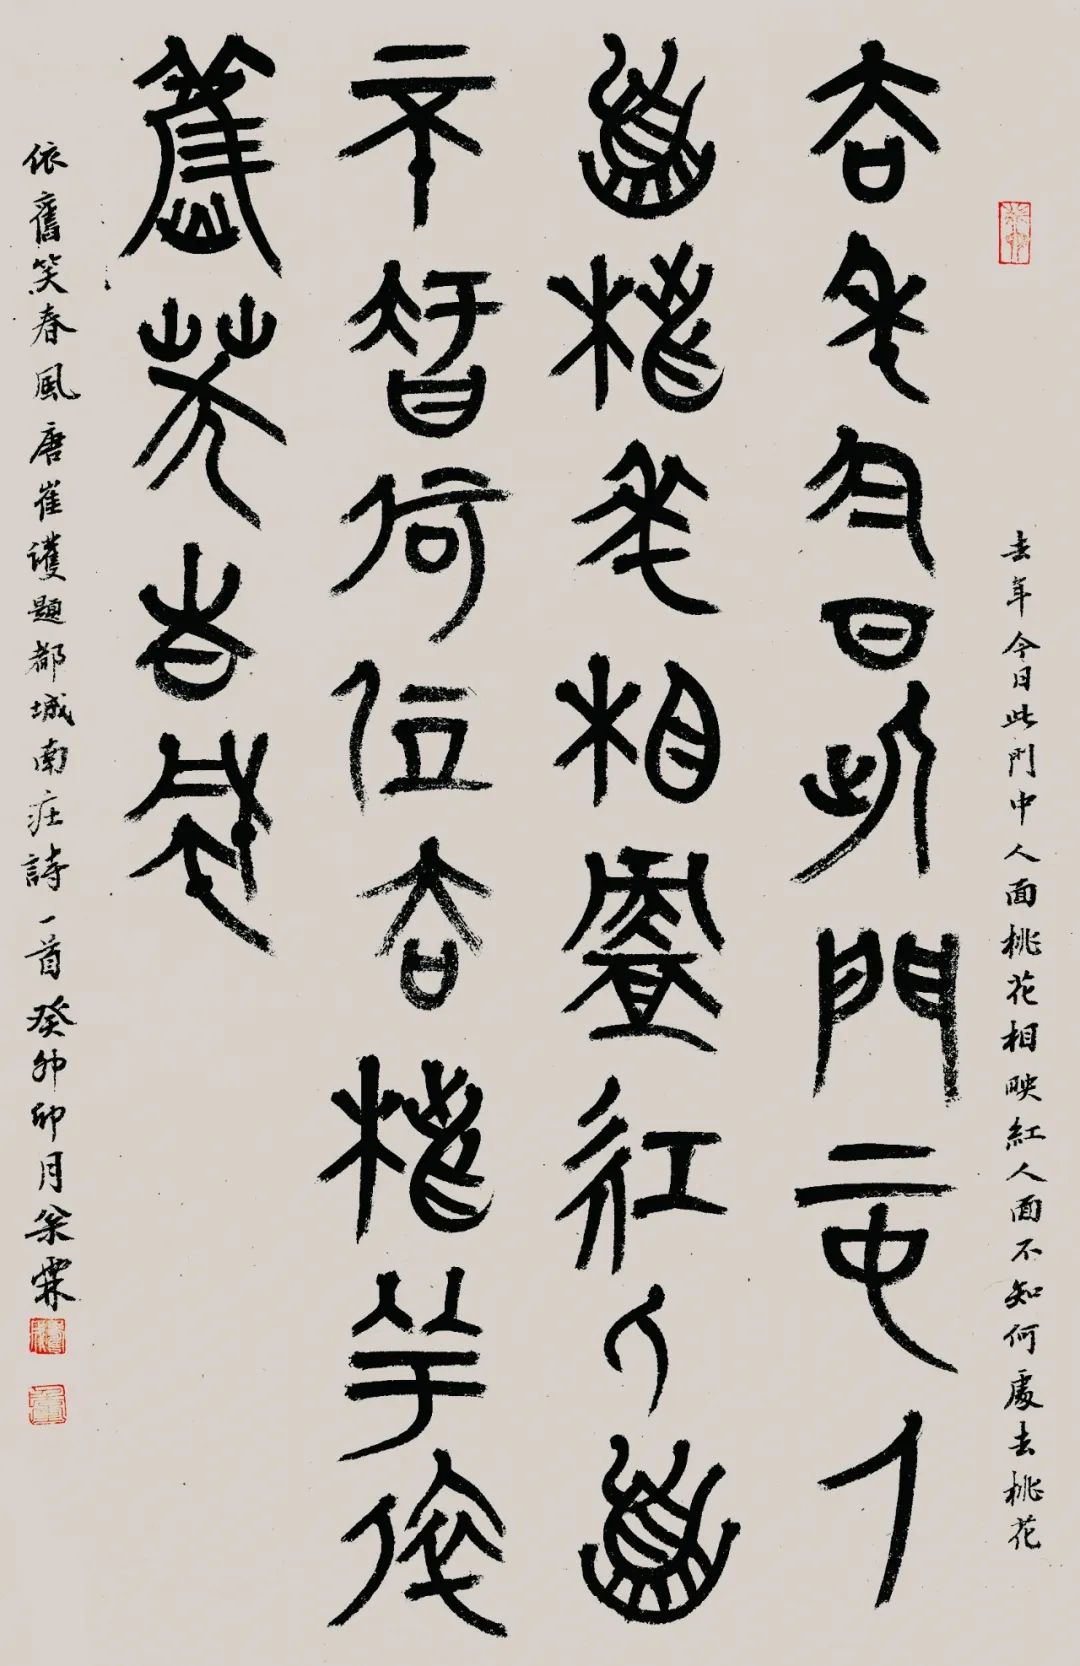 去年今日此門中人面桃花相映紅人面不知何處去桃花
去年今日此門中人
面桃花相映紅人面
不知何處去桃花依
舊笑春風
依舊笑春風唐崔護題都城南庄詩一首癸卯卯月霖